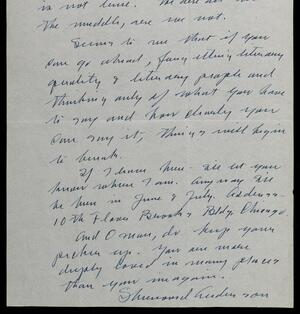 is not time. We are all in
the middle, are we not.
Seems to me that if you
can go ahead, forgetting literary
quality & literary people and
thinking only of what you have
to say and how clearly you
can say it, things will begin
to break.
If I leave here - I'll let you
know where I am. Anyway I'll
be here in June & July. Address -
10th Floor Brooks Bldg. Chicago.
And O man, do keep your
pecker up. You are more
deeply loved in many places
than you imagine.
Sherwood Anderson